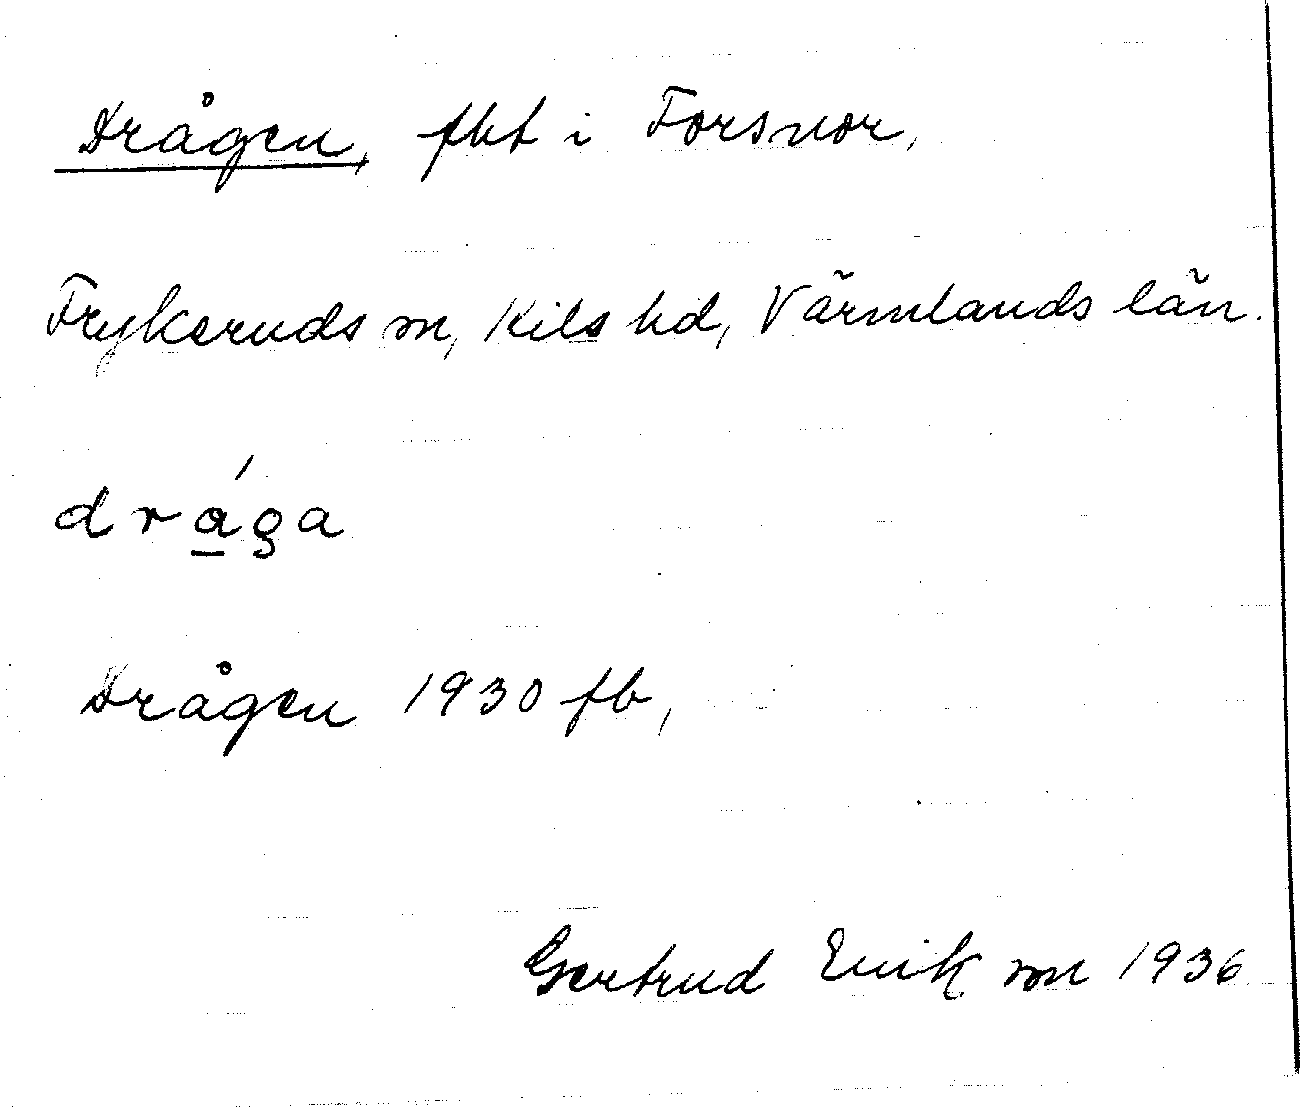 Drågen, fbt i Forsnor,
Frykeruds sn, Kils hd, Värmlands län.
drága
Drågen 1930 fb,
Gertrud Envik sn 1936